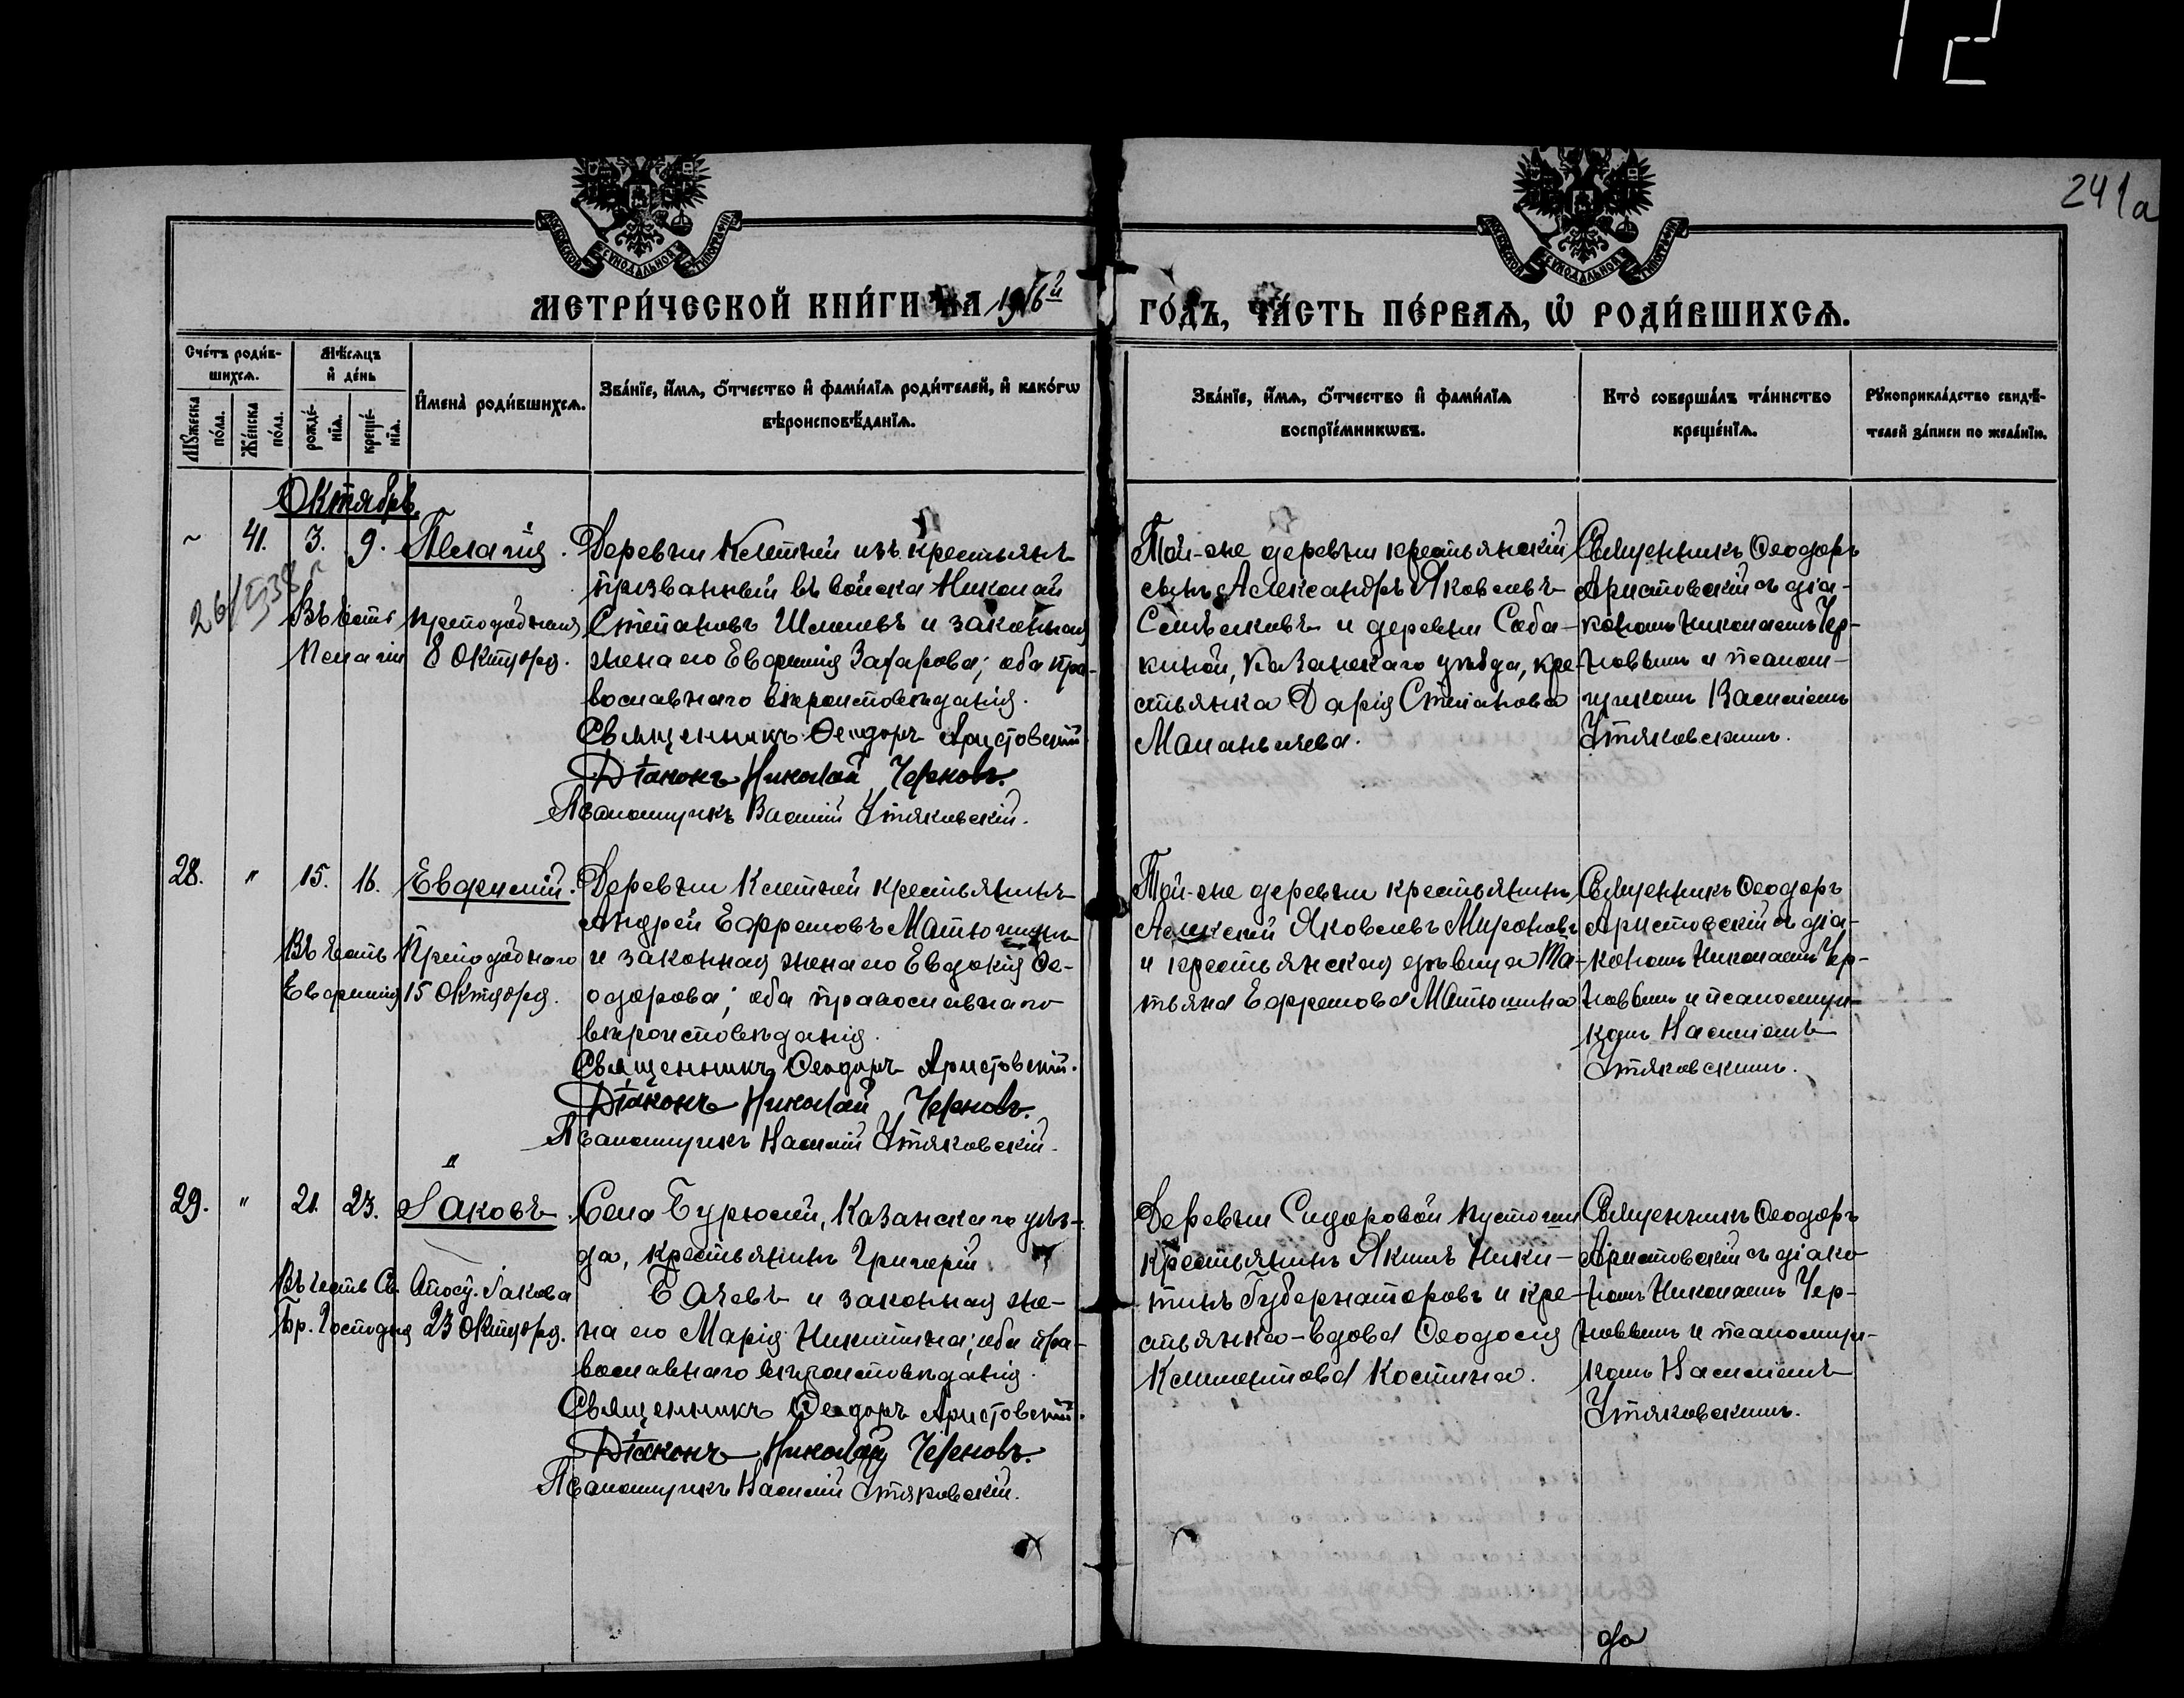 12
241а
МОСКОВСКОЙ СѴНОДАЛЬНОЙ ТИПОГРАФІИ
МОСКОВСКОЙ СѴНОДАЛЬНОЙ ТИПОГРАФІИ
МЕТРИ́ЧЕСКОЙ КНИ́ГИ НА 1916й
ГО́ДЪ, ЧА́СТЬ ПЕ́РВАѦ, Ѡ РОДИ́ВШИХСѦ.
Сче́тъ роди́в-
шихсѧ.
Мѣ́сѧцъ
и҆ де́нь
Мꙋ́жеска
по́ла.
Же́нска
по́ла.
рожде́-
нїѧ.
креще́-
нїѧ.
И҆мена̀ роди́вшихсѧ.
Зва́нїе, и҆́мѧ, ѻ҆́тчество и҆ фами́лїѧ роди́телей, и҆ како́гѡ
вѣроисповѣ́данїѧ.
Зва́нїе, и҆́мѧ, ѻ҆́тчество и҆ фами́лїѧ
воспрїе́мникѡвъ.
Кто̀ соверша́лъ та́инство
креще́нїѧ.
Рꙋкоприкла́дство свидѣ́-
телей за́писи по жела́нїю.
Октябрь.
~ 41. 3. 9. Пелагія.
Въ честь преподобныя
Пелагіи 8 Октября.
Деревни Клетней изъ крестьянъ
призванный въ войска Николай
Степановъ и законная
жена его Евфимія Захарова; оба пра-
вославнаго вѣроисповѣданія.
Священникъ Ѳеодоръ Аристовскій.
Діаконъ Николай Черновъ.
Псаломщикъ Василій Утяковскій.
Той-же деревни крестьянскій
сынъ Александръ Яковлевъ
и деревни Саба-
киной, Казанскаго уѣзда, кре-
стьянка Дарія Степанова
Маланьичева.
Священникъ Ѳеодоръ
Аристовскій съ діа-
кономъ Николаемъ Чер-
новымъ и псалом-
щикомъ Василіемъ
Утяковскимъ.
28. " 15. 16. Евфимій.
Въ честь Преподобнаго
Евфимія 15 Октября.
Деревни Клетней крестьянинъ
Андрей Ефремовъ Матюшинъ
и законная жена его Евдокія Ѳе-
одорова; оба православнаго
вѣроисповѣданія.
Священникъ Ѳеодоръ Аристовскій.
Діаконъ Николай Черновъ.
Псаломщикъ Василій Утяковскій.
Той-же деревни крестьянинъ
Алексѣй Яковлевъ Мироновъ
и крестьянская дѣвица Та-
тьяна Ефремова Матюшина
Священникъ Ѳеодоръ
Аристовскій съ діа-
кономъ Николаемъ Чер-
новымъ и псаломщи-
комъ Василіемъ
Утяковскимъ.
29. " 21. 23. Іаковъ.
Въ честь Св. Апост. Іакова
Бр. Господня 23 Октября.
Села Бурюлей, Казанскаго уѣз-
да, крестьянинъ Григорій
и законная же-
на его Марія Никитина; оба пра-
вославнаго вѣроисповѣданія.
Священникъ Ѳеодоръ Аристовскій.
Діаконъ Николай Черновъ.
Псаломщикъ Василій Утяковскій.
Деревни Сидоровой Пустоши
крестьянинъ Якимъ Ники-
тинъ Губернаторовъ и кре-
стьянка-вдова Ѳеодосія
Климентова Костина.
Священникъ Ѳеодоръ
Аристовскій съ діако-
номъ Николаемъ Чер-
новымъ и псаломщи-
комъ Василіемъ
Утяковскимъ.